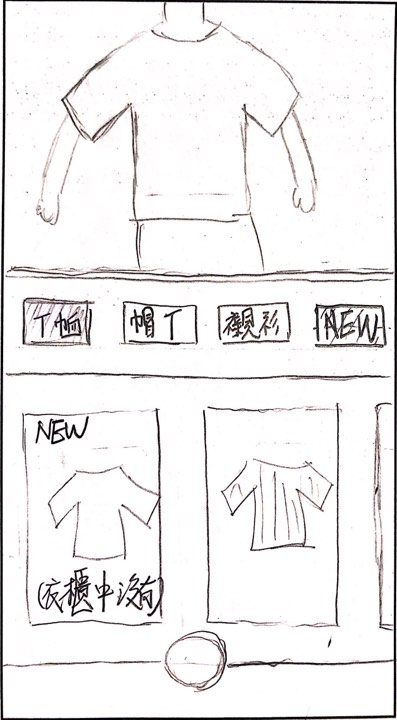 T恤
帽T
襯衫
NEW
NEW
(衣櫃中沒有)